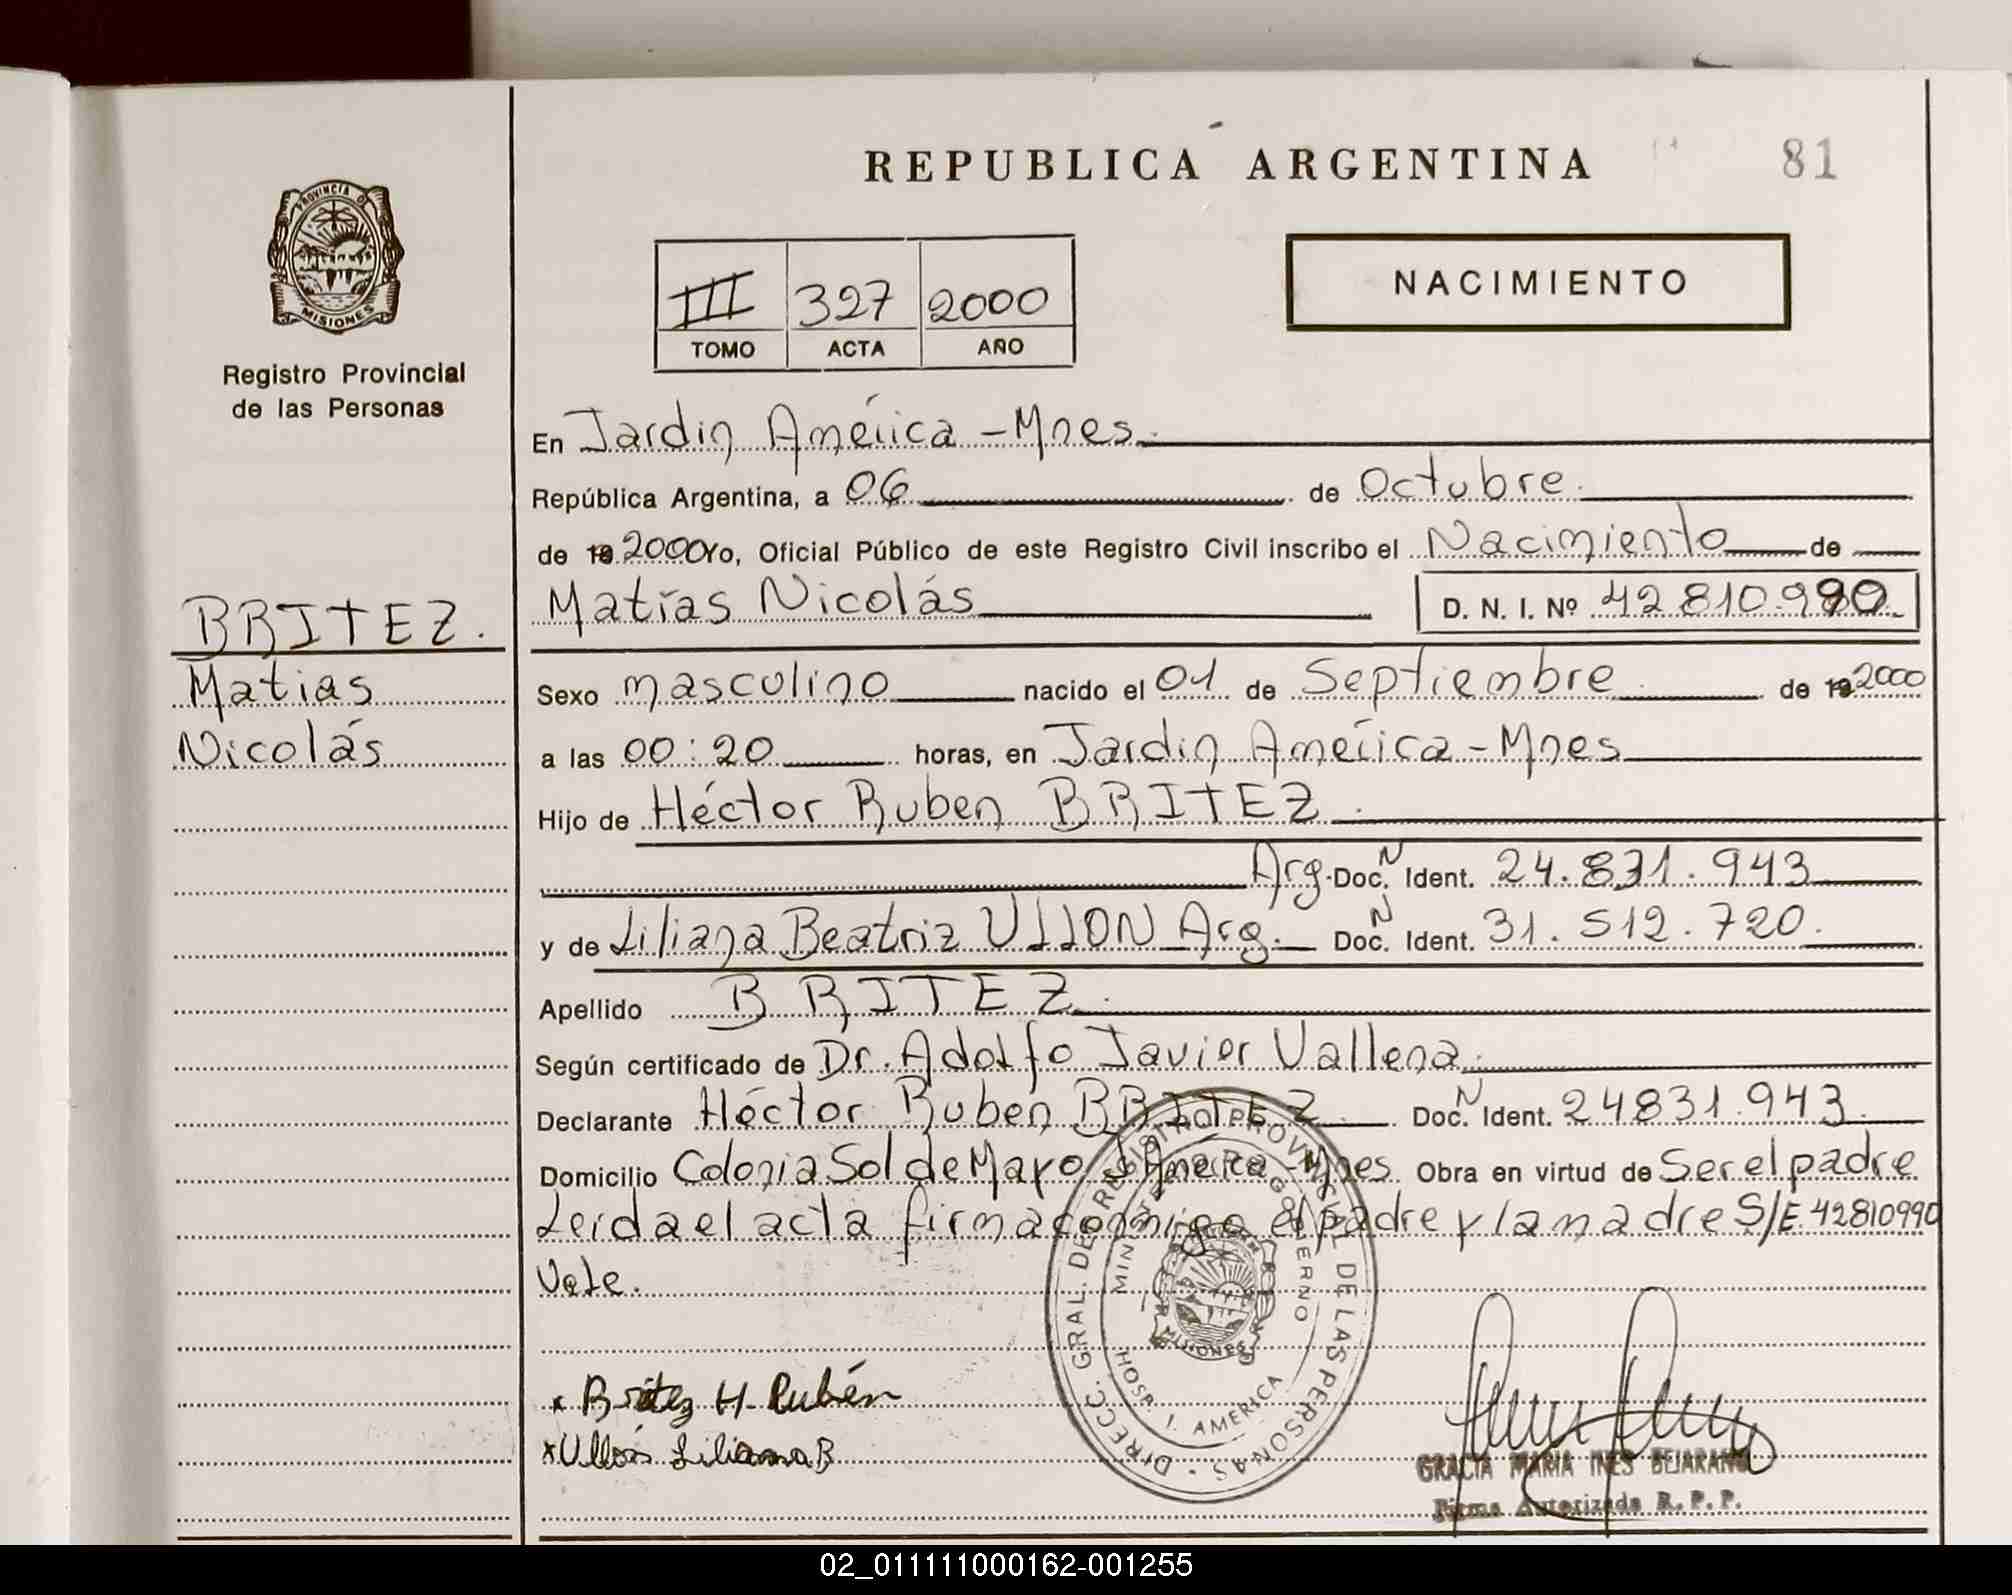 REPUBLICA ARGENTINA
81
PROVINCIA D
MISIONES
Registro Provincial
de las Personas
III 327 2000
TOMO ACTA AÑO
NACIMIENTO
En Jardin América - Mnes.
República Argentina, a 06 de Octubre.
de 19 2000 Yo, Oficial Público de este Registro Civil inscribo el Nacimiento de
Matías Nicolás D. N. I. Nº 42 810.990
BRITEZ.
Matias
Nicolás
Sexo masculino nacido el 01 de Septiembre de 19 2000
a las 00:20 horas, en Jardin América - Mnes
Hijo de Héctor Ruben BRITEZ.
Arg. Doc. N Ident. 24.831.943
y de Liliana Beatriz ULLON Arg. Doc. N Ident. 31.512.720.
Apellido BRITEZ.
Según certificado de Dr. Adolfo Javier Vallena.
Declarante Héctor Ruben BRITEZ. Doc. N Ident. 24831.943.
Domicilio Colonia Sol de Mayo J América - Mnes Obra en virtud de Ser el padre
Leida el acta firma conmigo el padre y la madre S/E. 42810990
Vale.
DIRECC. GRAL. DE REGISTRO PROVINCIAL DE LAS PERSONAS
MINISTERIO DE GOBIERNO
MISIONES
HOSP. J. AMERICA
x Britez H. Rubén
x Ullón Liliana B
GRACIA MARIA INES BEJARANO
Firma Autorizada R. P. P.
02_011111000162-001255